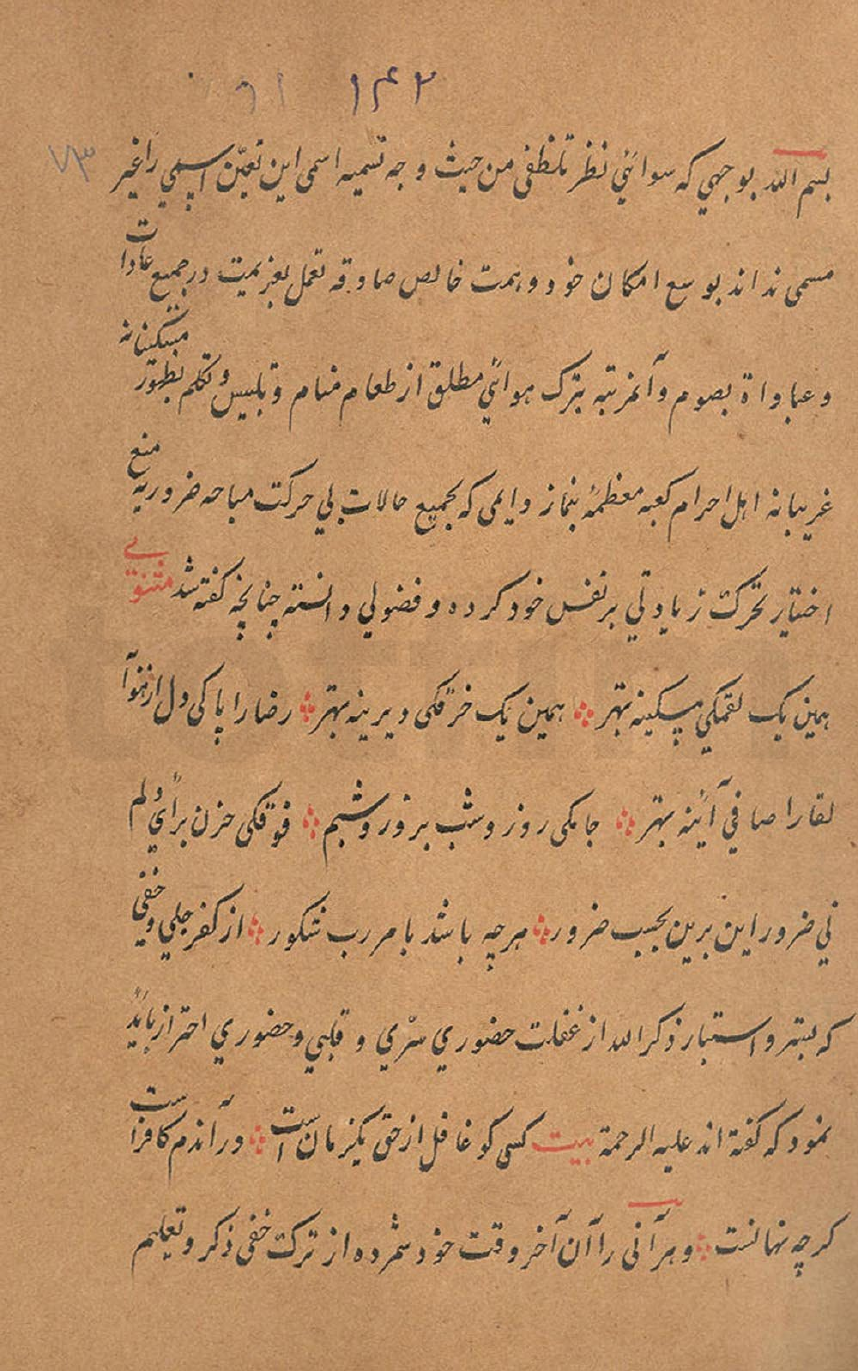 ۱۴۲ ۶۱
۷۳
بسم الله بوجهي که سوائي نظر تلفظی من حیث وجه تسمیه اسمی این تعیّن اسمي را غیر
مسمی نداند بوسع امکان خود و همت خالص صادقه تعمل بعزیمت در جمیع عادات
و عباداة بصوم و آنمرتبه بترک هوائي مطلق از طعام منام و تلبیس و تکلم بطور مسکینانه
غریبانه اهل احرام کعبه معظمهٔ بنماز دایمی که بجمیع حالات بي حرکت مباحه ضروریه منع
اختیار تحرک زیادتي بر نفس خود کرده و فضولي دانسته چنانچه گفته شد مثنوي
همین یک لقمکي مسکینه بهتر ؞ همین یک خرقکی دیرینه بهتر ؞ رضا را پاکی دل از هوا
لقا را صافي آئینه بهتر ؞ جامکی روز و شب بروز و شبم ؞ قوتکی حزن برائي دلم
ني ضرور این برین بحسب ضرور ؞ هرچه باشد بامر رب شکور ؞ از کفر جلي و خفي
که بستر و استبار ذکر الله از غفلت حضوري سرّي و قلبي و حضوري احتراز باید
نمود که گفته اند علیه الرحمة بیت کسی کو غافل از حق یکزمان است ؞ درآندم کافر است
گرچه نهانست ؞ و هر آنی را آن آخر وقت خود شمرده از ترک خفی ذکر و تعلیم